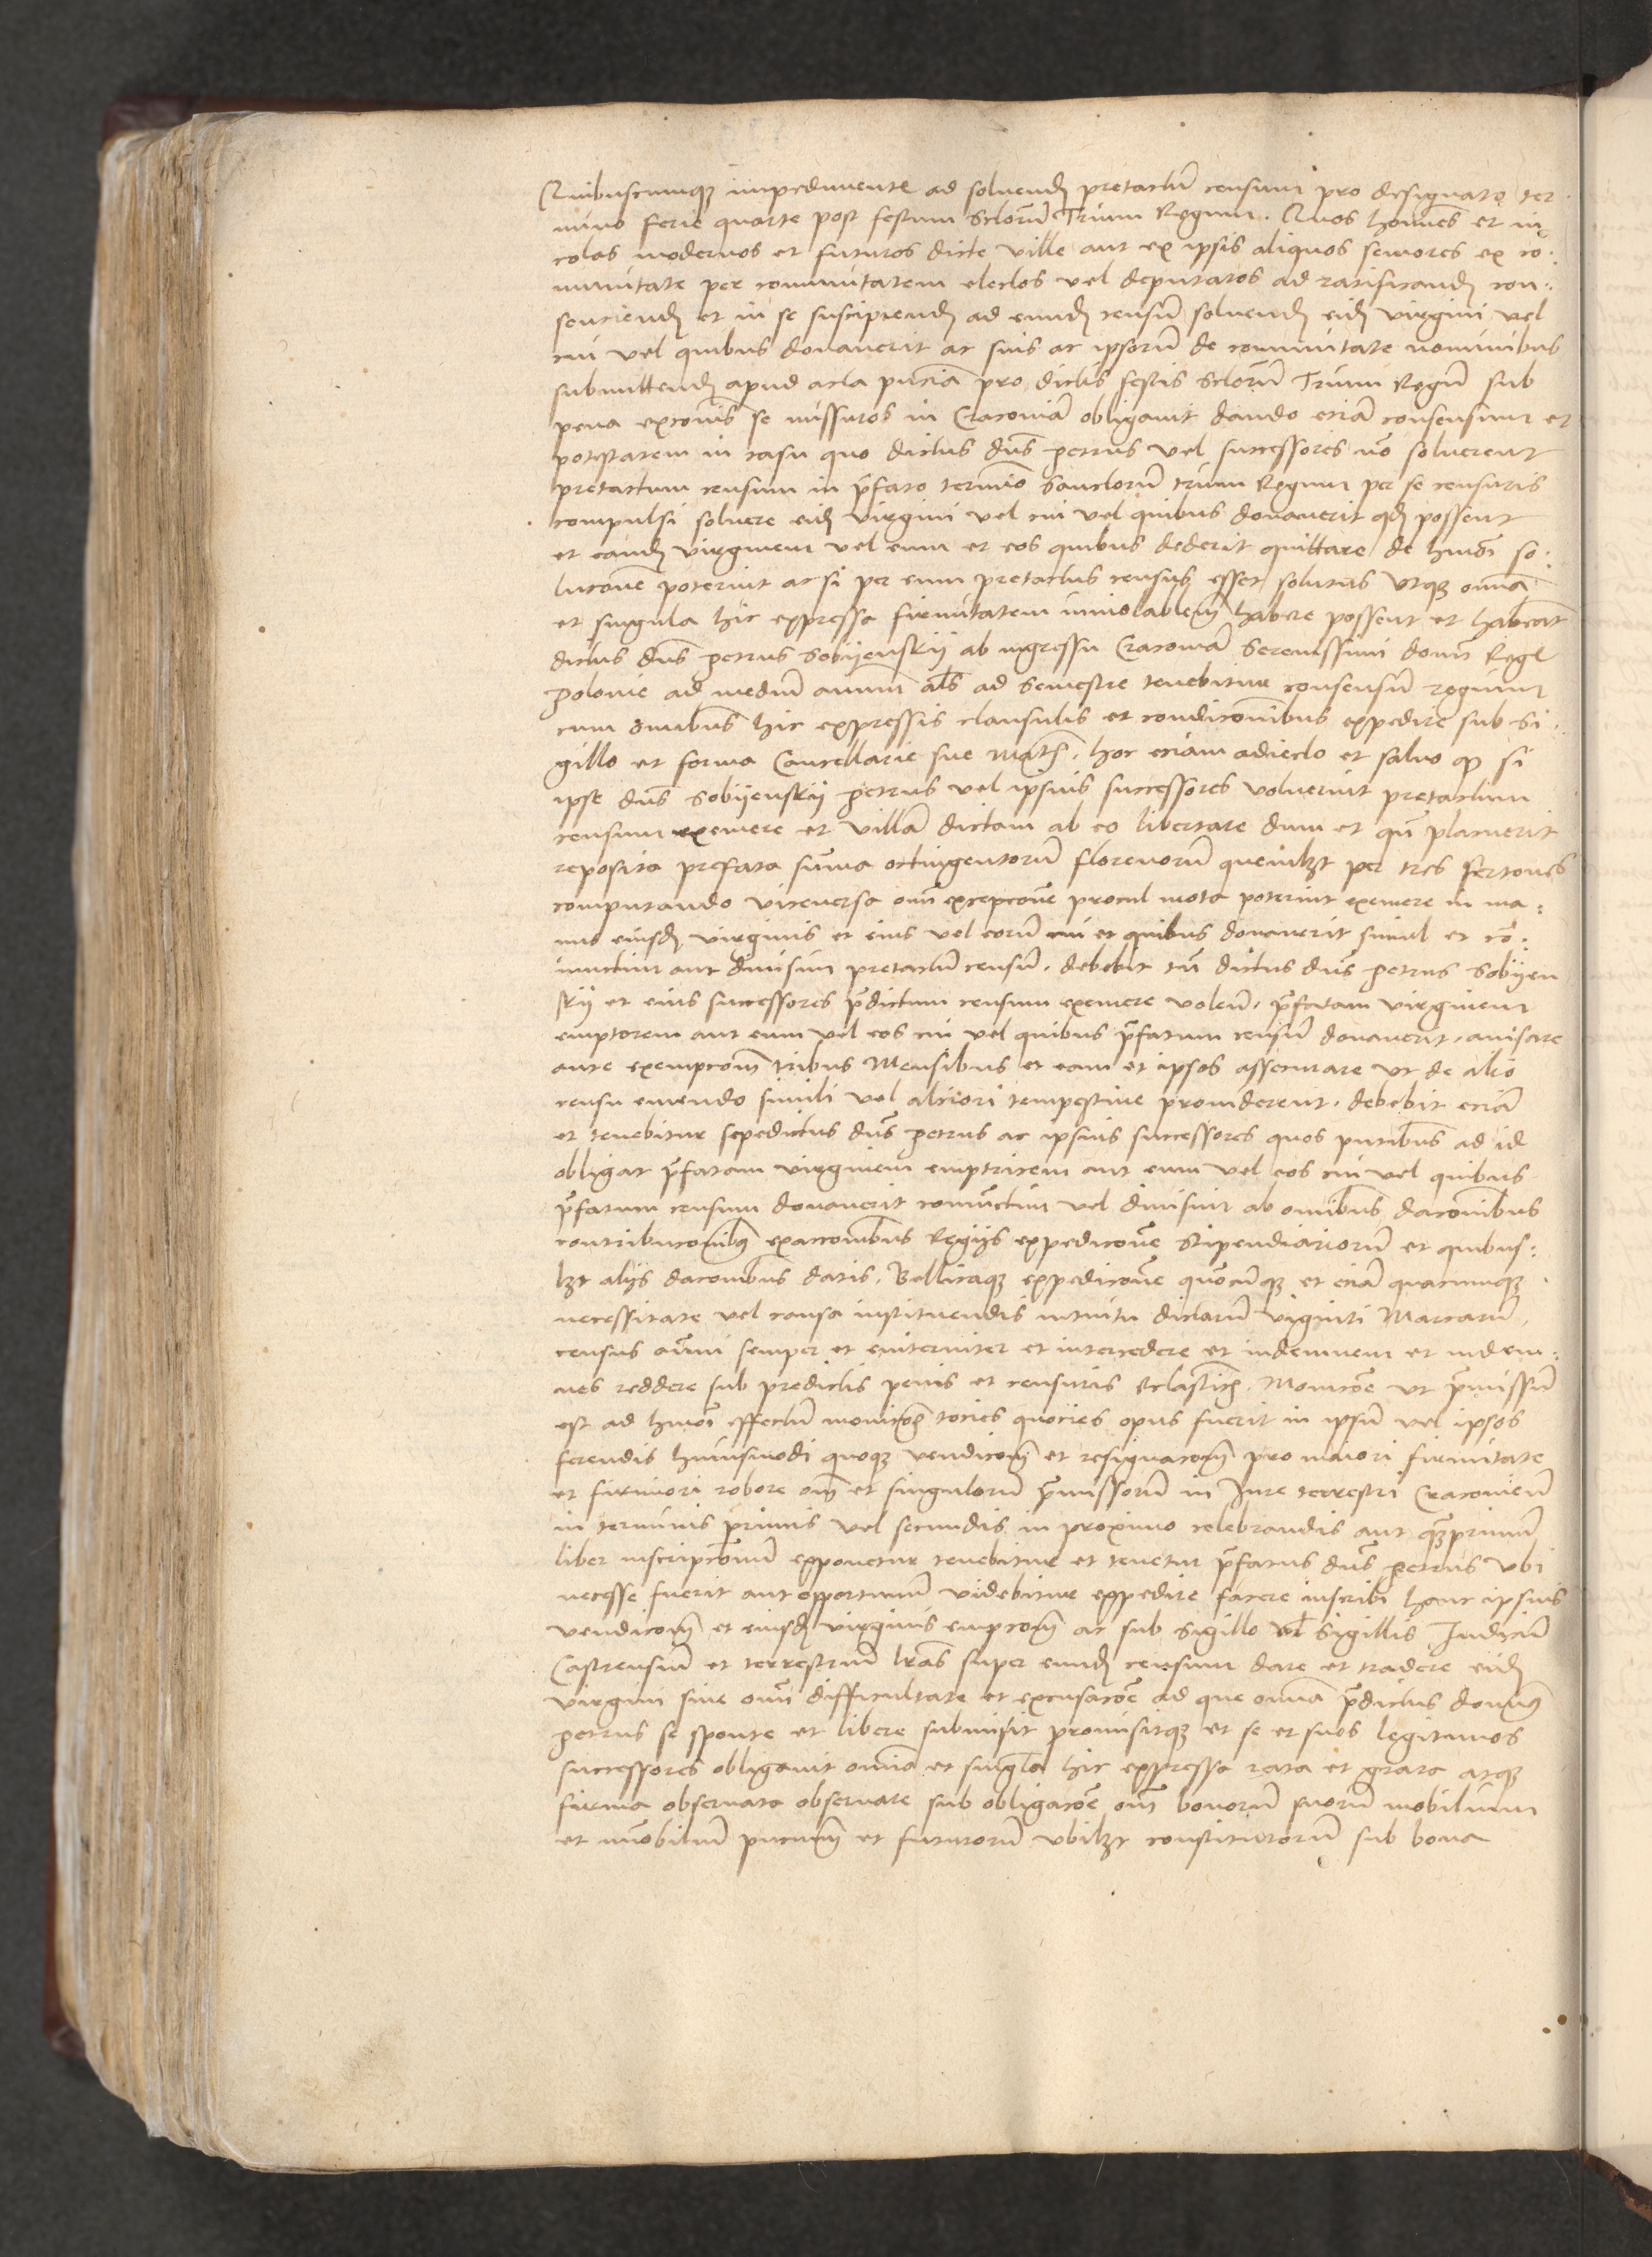 Quibuscumq impedimente ad soluend pretactu censum pro designato ter
mino ferie quarte post festum Sctoru Trium Regum. Quos homines et in
colas modernos et futuros dicte ville aut ex ipsis aliquos seniores ex co:
munitate per communitatem electos vel deputatos ad ratificand con:
senciend et in se suscipiend ad eund censu soluend eid virgini vel
cui vel quibus donaverit ac suis ac ipsoru de comunitate nominibus
submittend apud acta pncia pro dictis festis Sctoru Trium Regu sub
pena excois se missuros in Cracovia obligavit dando ecia consensum et
potestatem in casu quo dictus dns petrus vel successores no soluerent
pretactum censum in pfato termio Sanctoru trium Regum per se censuris
compulsi soluere eid virgini vel cui vel quibus donaverit qd possent
et eand virginem vel eum et eos quibus dederit quittare de hmoi so:
lucone poterint ac si per eum pretactus census esset solutus utq omia
et singula hic expressa firmitatem inviolabilem habere possent et habeat
dictus dns petrus Sobijenskij ab ingressu Cracovia Serenissimi domi Regl
polonie ad mediu annum als ad semestre tenebitur consensu regium
cum omibus hic expressis clausulis et condicionibus expedire sub si:
gillo et forma Cancellarie sue Mtis. hoc eciam adiecto et salvo q si
ipse dns Sobijenskij petrus vel ipsius successores voluerint pretactum
censum exemere et villa dictam ab eo libertare dum et qn placuerit
reposita prefata suma octingentoru florenoru quemlzt per tres fertones
computando viceversa omi excepcone procul mota poterint exemere in ma:
nus eiusd virginis et eius vel eoru cui et quibus donaverit simul et co:
iunctim aut divisim pretactu censu. debebit tn dictus dns petrus Sobijen
skij et eius successores pdictum censum exemere volen. pfatam virginem
emptorem aut eum vel eos cui vel quibus pfatum censu donaverit. avisare
ante exempcom tribus Mensibus et eam et ipsos assecurare ut de alio
censu emendo simili vel alciori tempestive providerent. debebit ecia
et tenebitur sepedictus dns petrus ac ipsius successores quos pntibus ad id
obligat pfatam virginem emptricem aut eum vel eos cui vel quibus
pfatum censum donaverit coniunctim vel divisim ab omibus daconibus
contribuconibus exacconibus Regijs expedicone Stipendiarioru et quibus:
lzt alijs daconibus datis. Bellicaq expedicone quocuq et ecia quacumq
necessitate vel causa instituendis intuitu dictaru viginti Marcaru
census anui semper et eviterniter et intercedere et indemnem et indem:
nes reddere sub predictis penis et censuris Eclasticis. Monicoe ut pmissu
est ad hmoi effectu monicoe tocies quocies opus fuerit in ipsu vel ipsos
ferendis huiusmodi quoq vendicois et resignacois pro maiori firmitate
et firmiori robore oim et singuloru pmissoru in Jure terrestri Cracovien
in terminis primis vel secundis in proximo celebrandis aut qzprimu
liber inscripconum exponetur tenebitur et tenetur pfatus dns petrus ubi
necesse fuerit aut opportunu videbitur expedire facere inscribi hanc ipsius
vendicom et eiusd virginis empcom ac sub sigillo vel sigillis Judicu
Castrensiu et terrestriu lras super eund censum dare et tradere eid
virgini sine omi difficultate et excusacoe ad que omia pdictus domus
petrus se sponte et libere submisit promisitq et se et suos legitimos
successores obligavit omia et singula hic expressa rata et grata atq
firma observata observare sub obligacoe oim bonoru suoru mobilium
et imobiliu pncium et futuroru ubilzt constitutoru sub bona